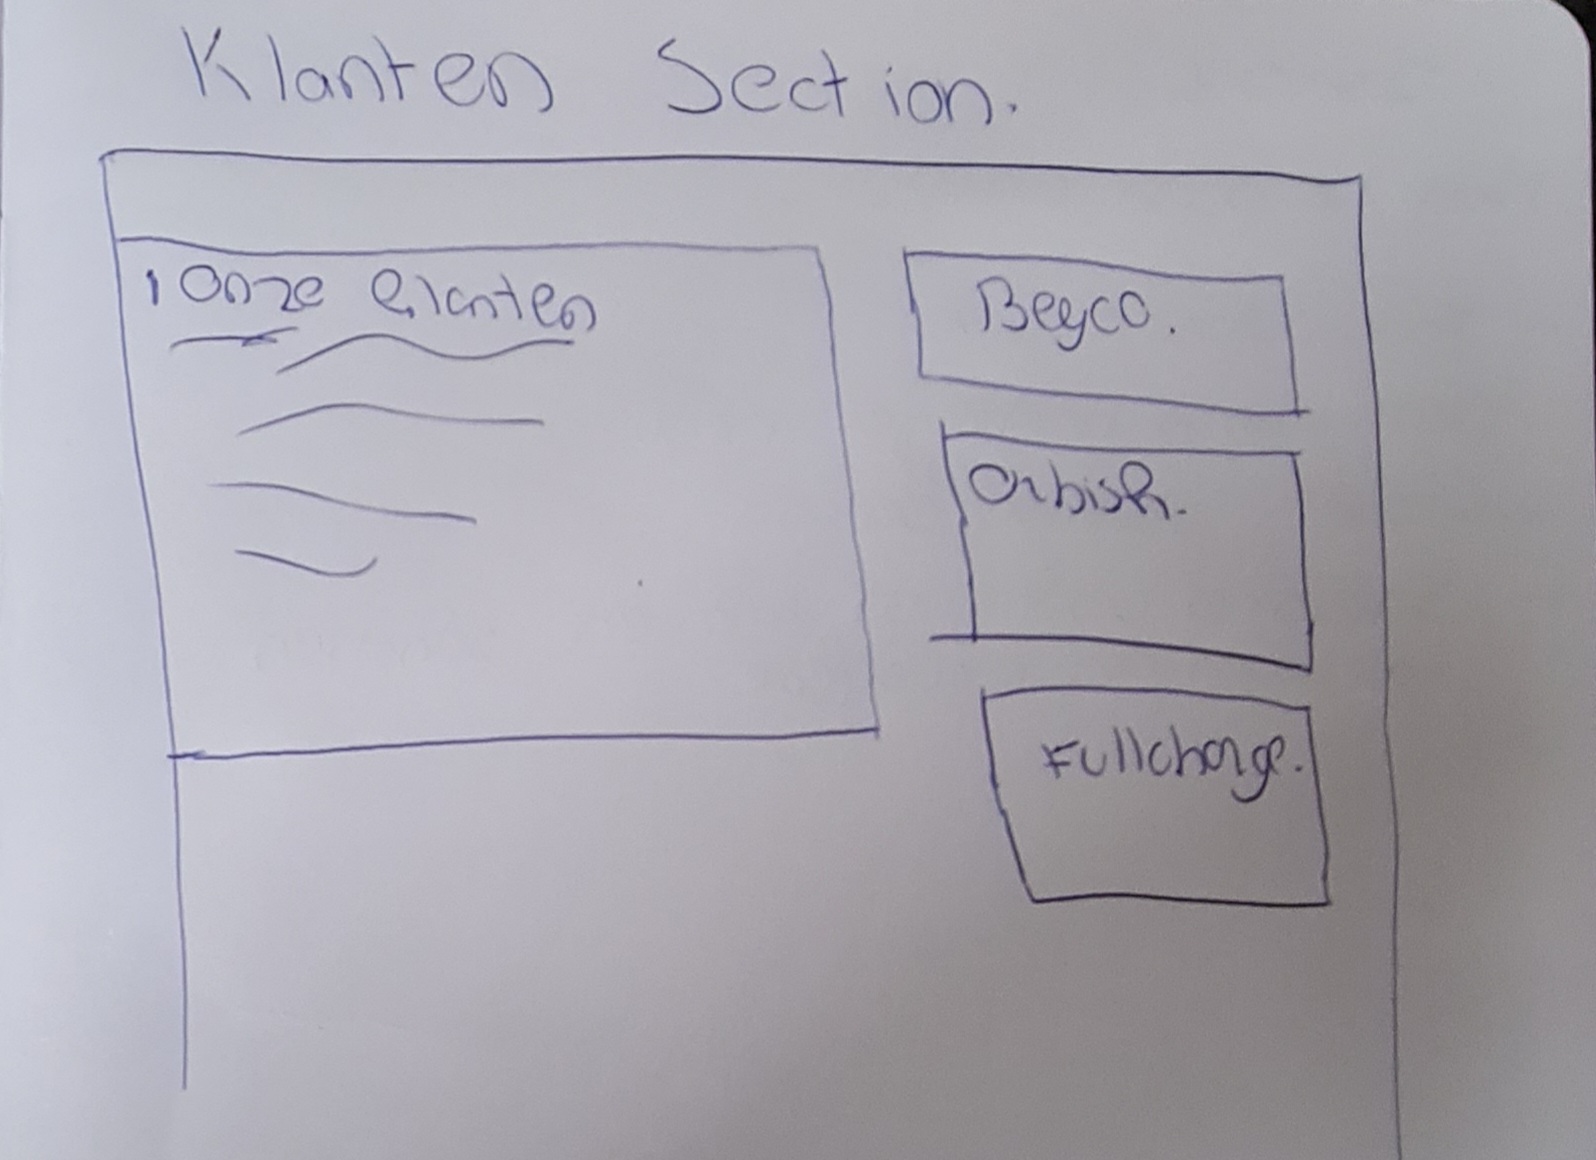 Klanten Section.
Onze klanten
Beyco.
Orbisk.
Fullcharge.